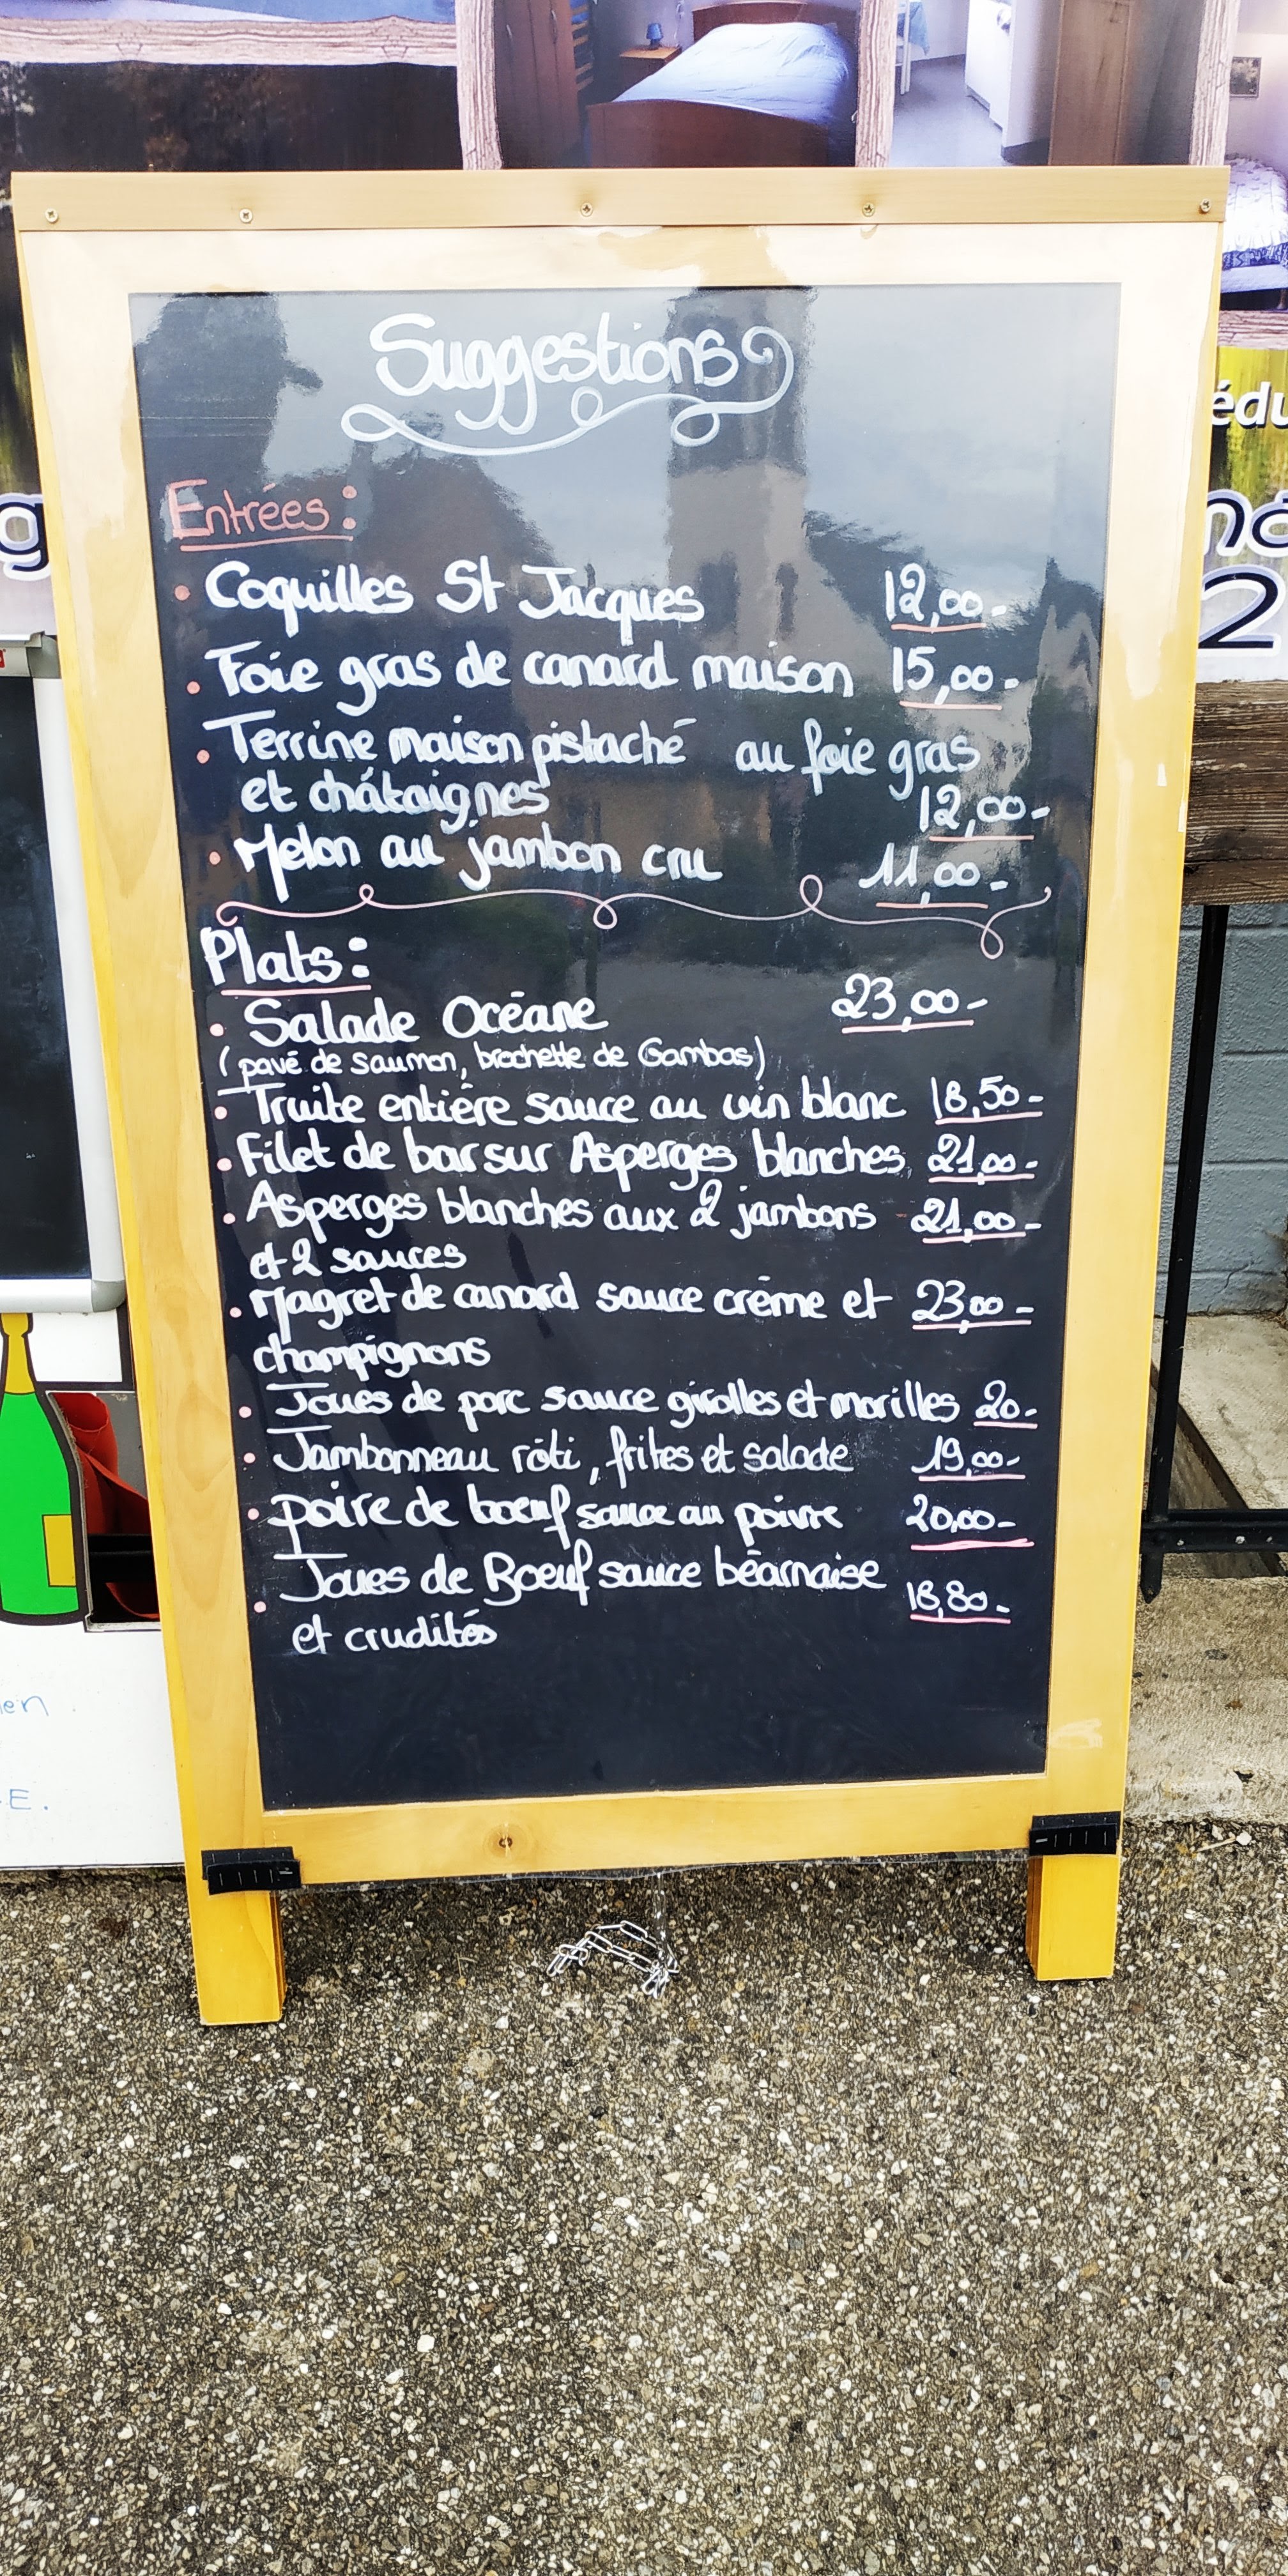 Suggestions
Entrées :
• Coquilles St Jacques 12,00.-
• Foie gras de canard maison 15,00.-
• Terrine maison pistaché au foie gras
et châtaignes 12,00-
• Melon au jambon cru 11,00.-
Plats :
• Salade Océane 23,00-
(pavé de saumon, brochette de Gambas)
• Truite entière sauce au vin blanc 18,50-
• Filet de bar sur Asperges blanches 21,00-
• Asperges blanches aux 2 jambons 21,00-
et 2 sauces
• Magret de canard sauce crème et 23,00-
champignons
• Joues de porc sauce girolles et morilles 20.-
• Jambonneau rôti, frites et salade 19,00-
• poire de boeuf sauce au poivre 20,00-
• Joues de Boeuf sauce béarnaise 18,80-
et crudités
édu
g
na
2
en
E.